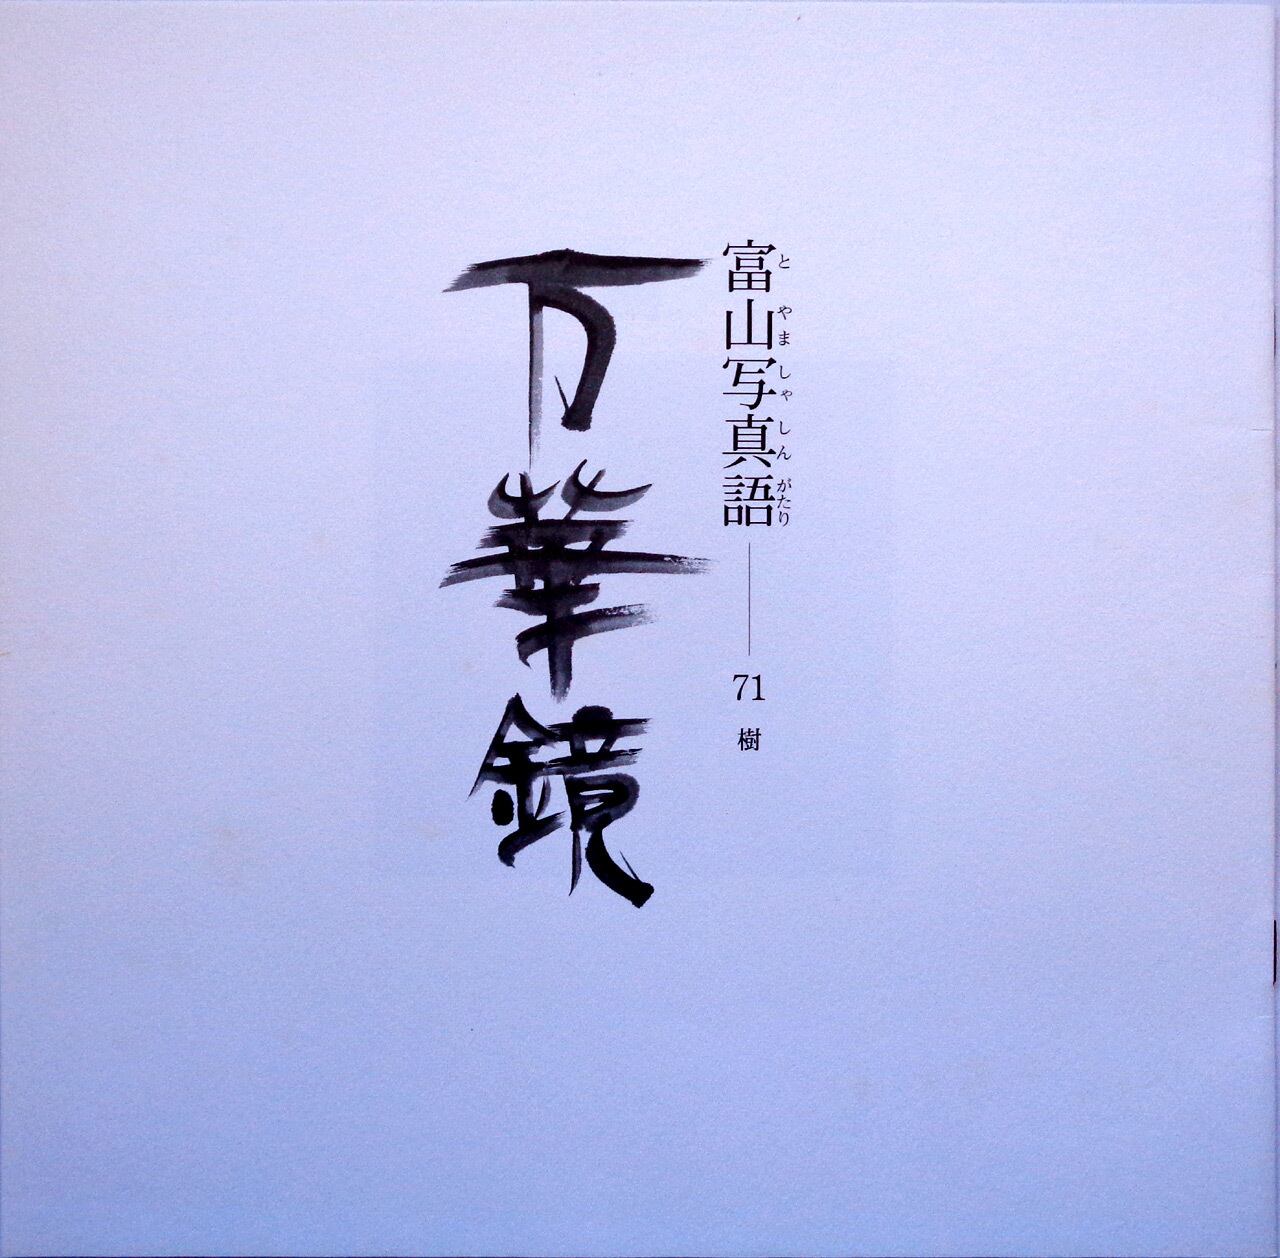 富山写真語
とやましゃしんがたり
71 樹
万華鏡